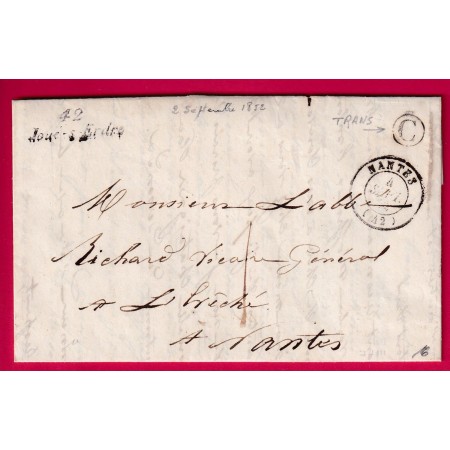 2 Septembre 1852
42
Joué-s-Erdre
TRANS
C
NANTES
4
SEPT
(42)
Monsieur L'abbé
Richard Vicaire Général
A L'Evêché
A Nantes
1